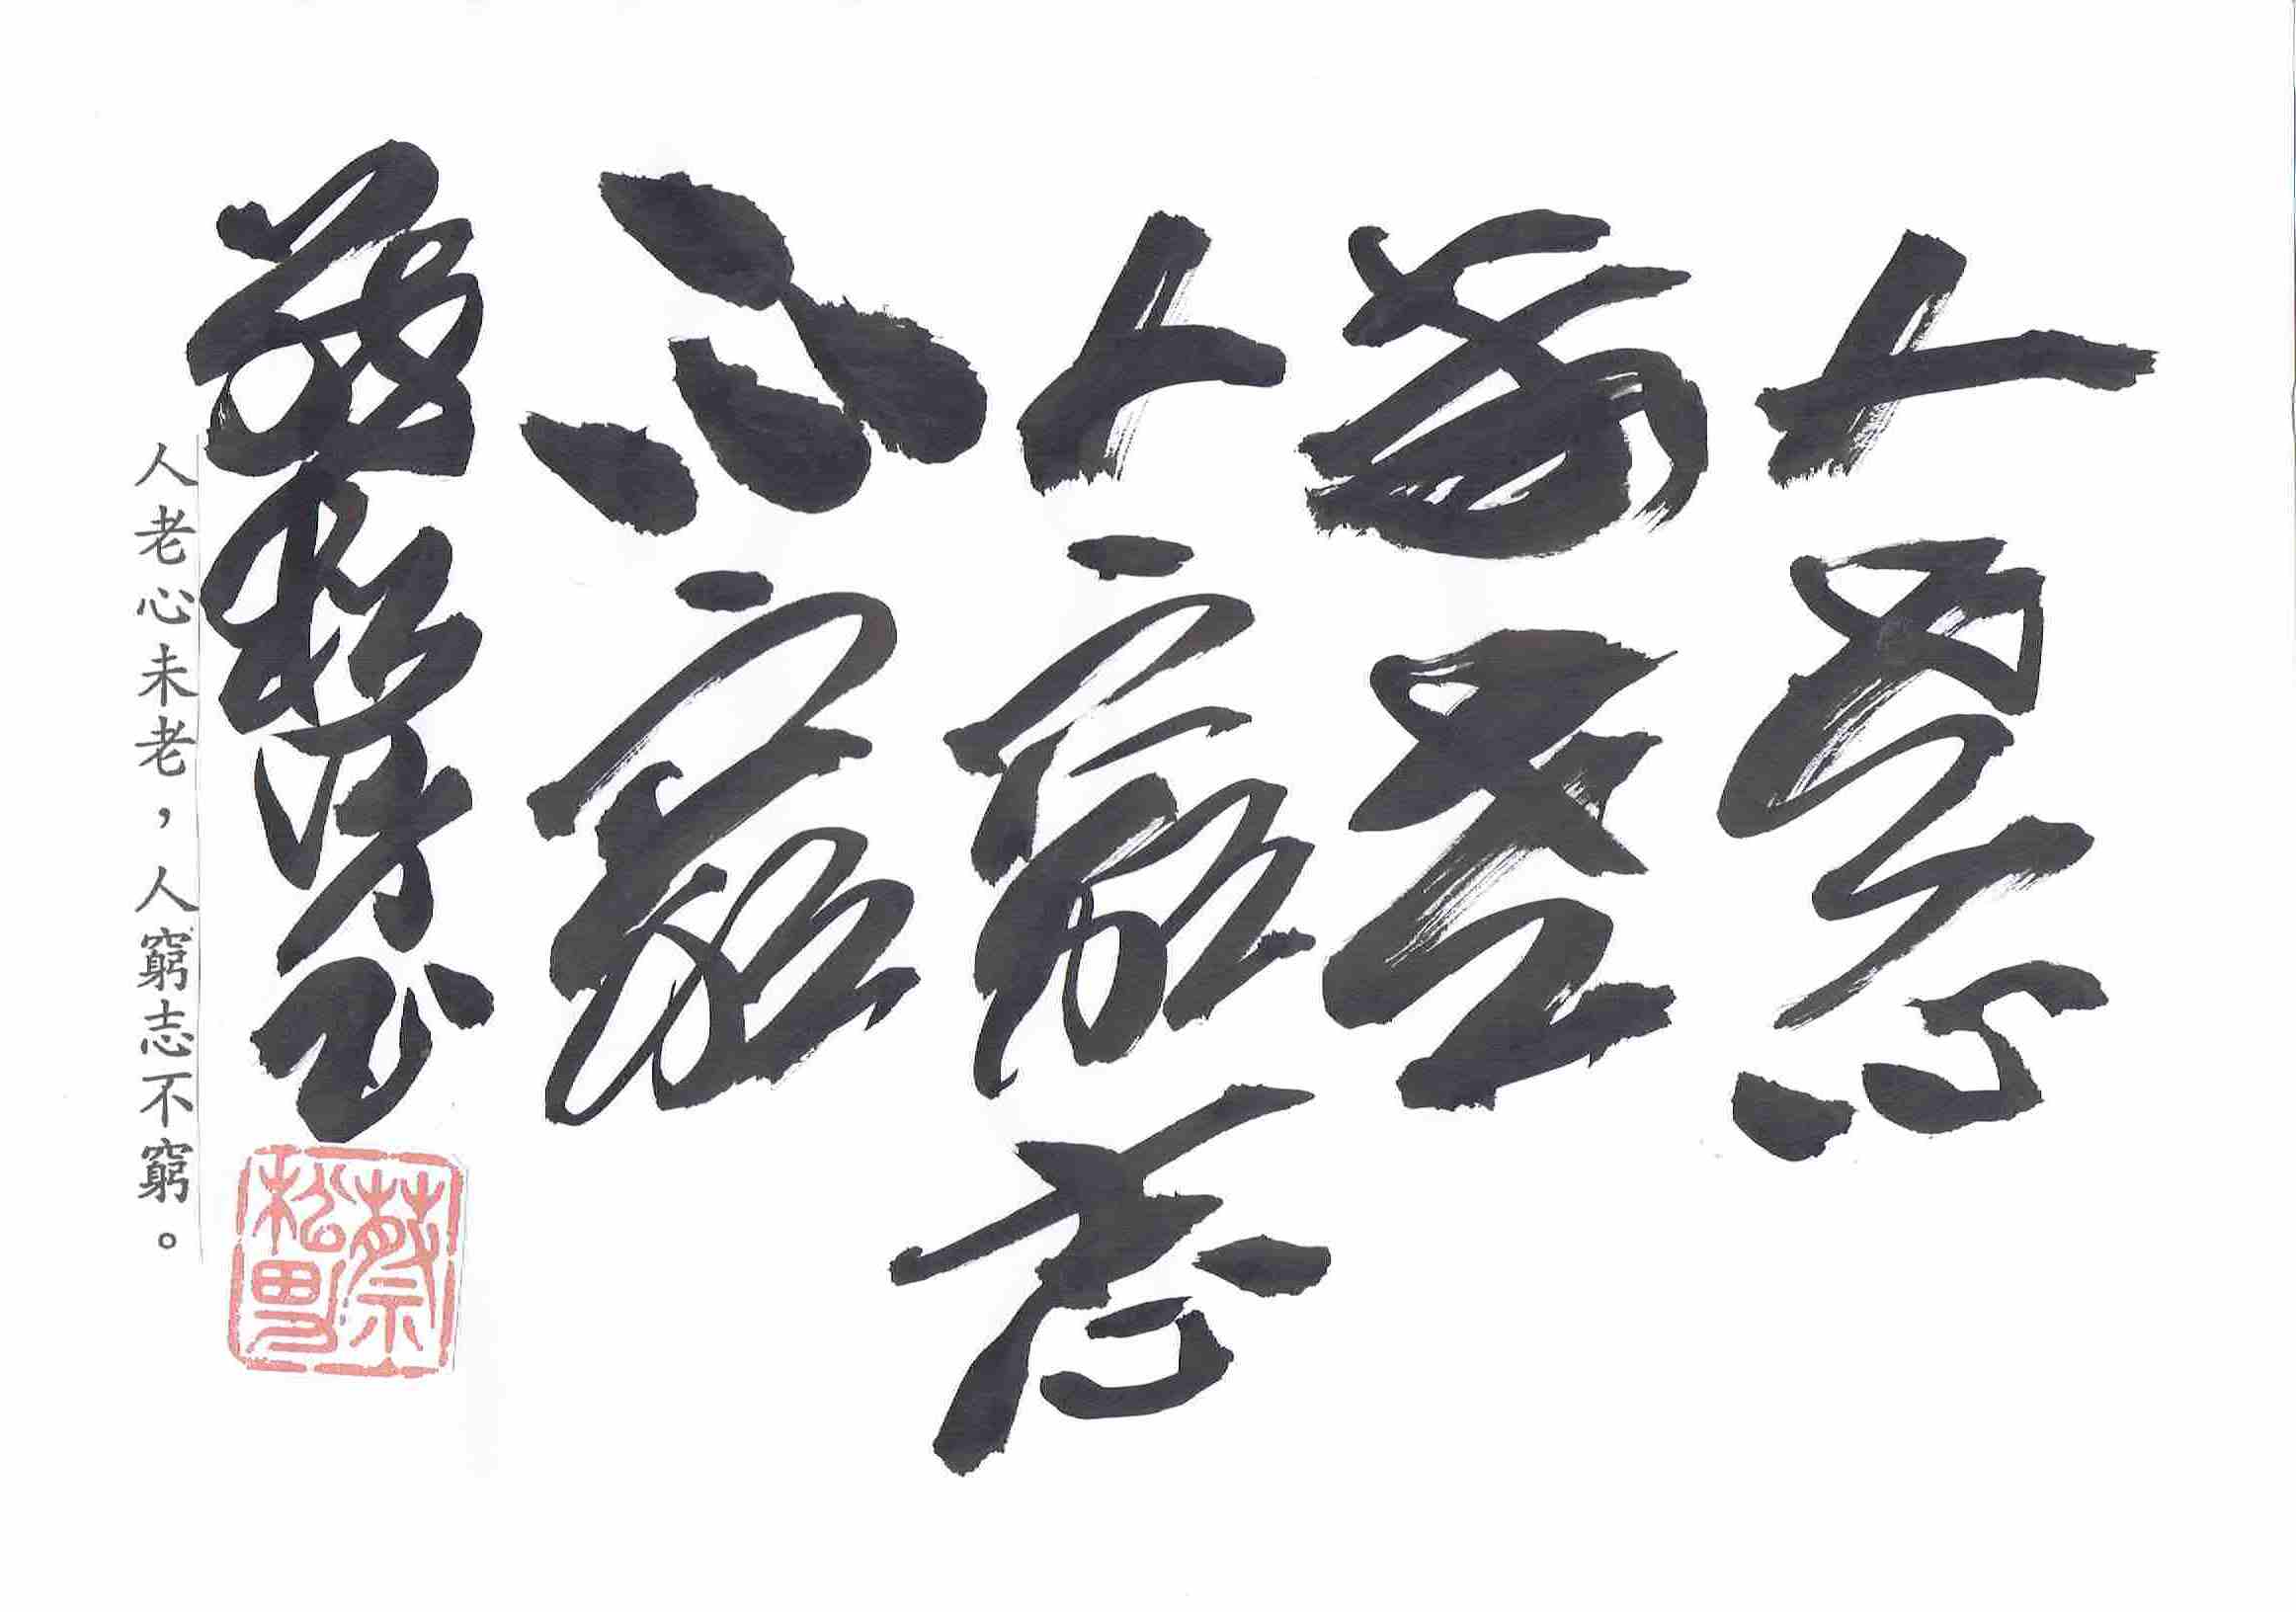 人老心
未老
人窮志
不窮
蔡松男書
蔡松男
人老心未老，人窮志不窮。